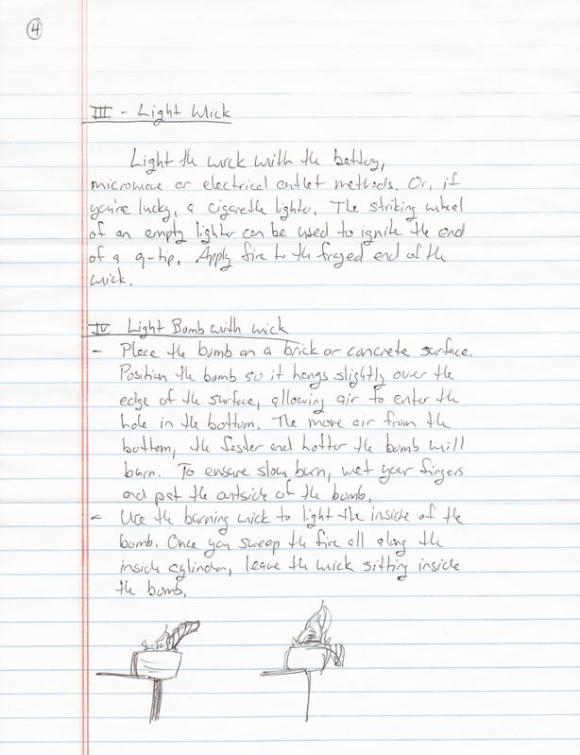 4
III - Light Wick
Light the wick with the battery,
microwave or electrical outlet methods. Or, if
you're lucky, a cigarette lighter. The striking wheel
of an empty lighter can be used to ignite the end
of a q-tip. Apply fire to the frayed end of the
wick.
IV Light Bomb with wick
- Place the bomb on a brick or concrete surface.
Position the bomb so it hangs slightly over the
edge of the surface, allowing air to enter the
hole in the bottom. The more air from the
bottom, the faster and hotter the bomb will
burn. To ensure slow burn, wet your fingers
and pat the outside of the bomb.
- Use the burning wick to light the inside of the
bomb. Once you sweep the fire all along the
inside cylinder, leave the wick sitting inside
the bomb.